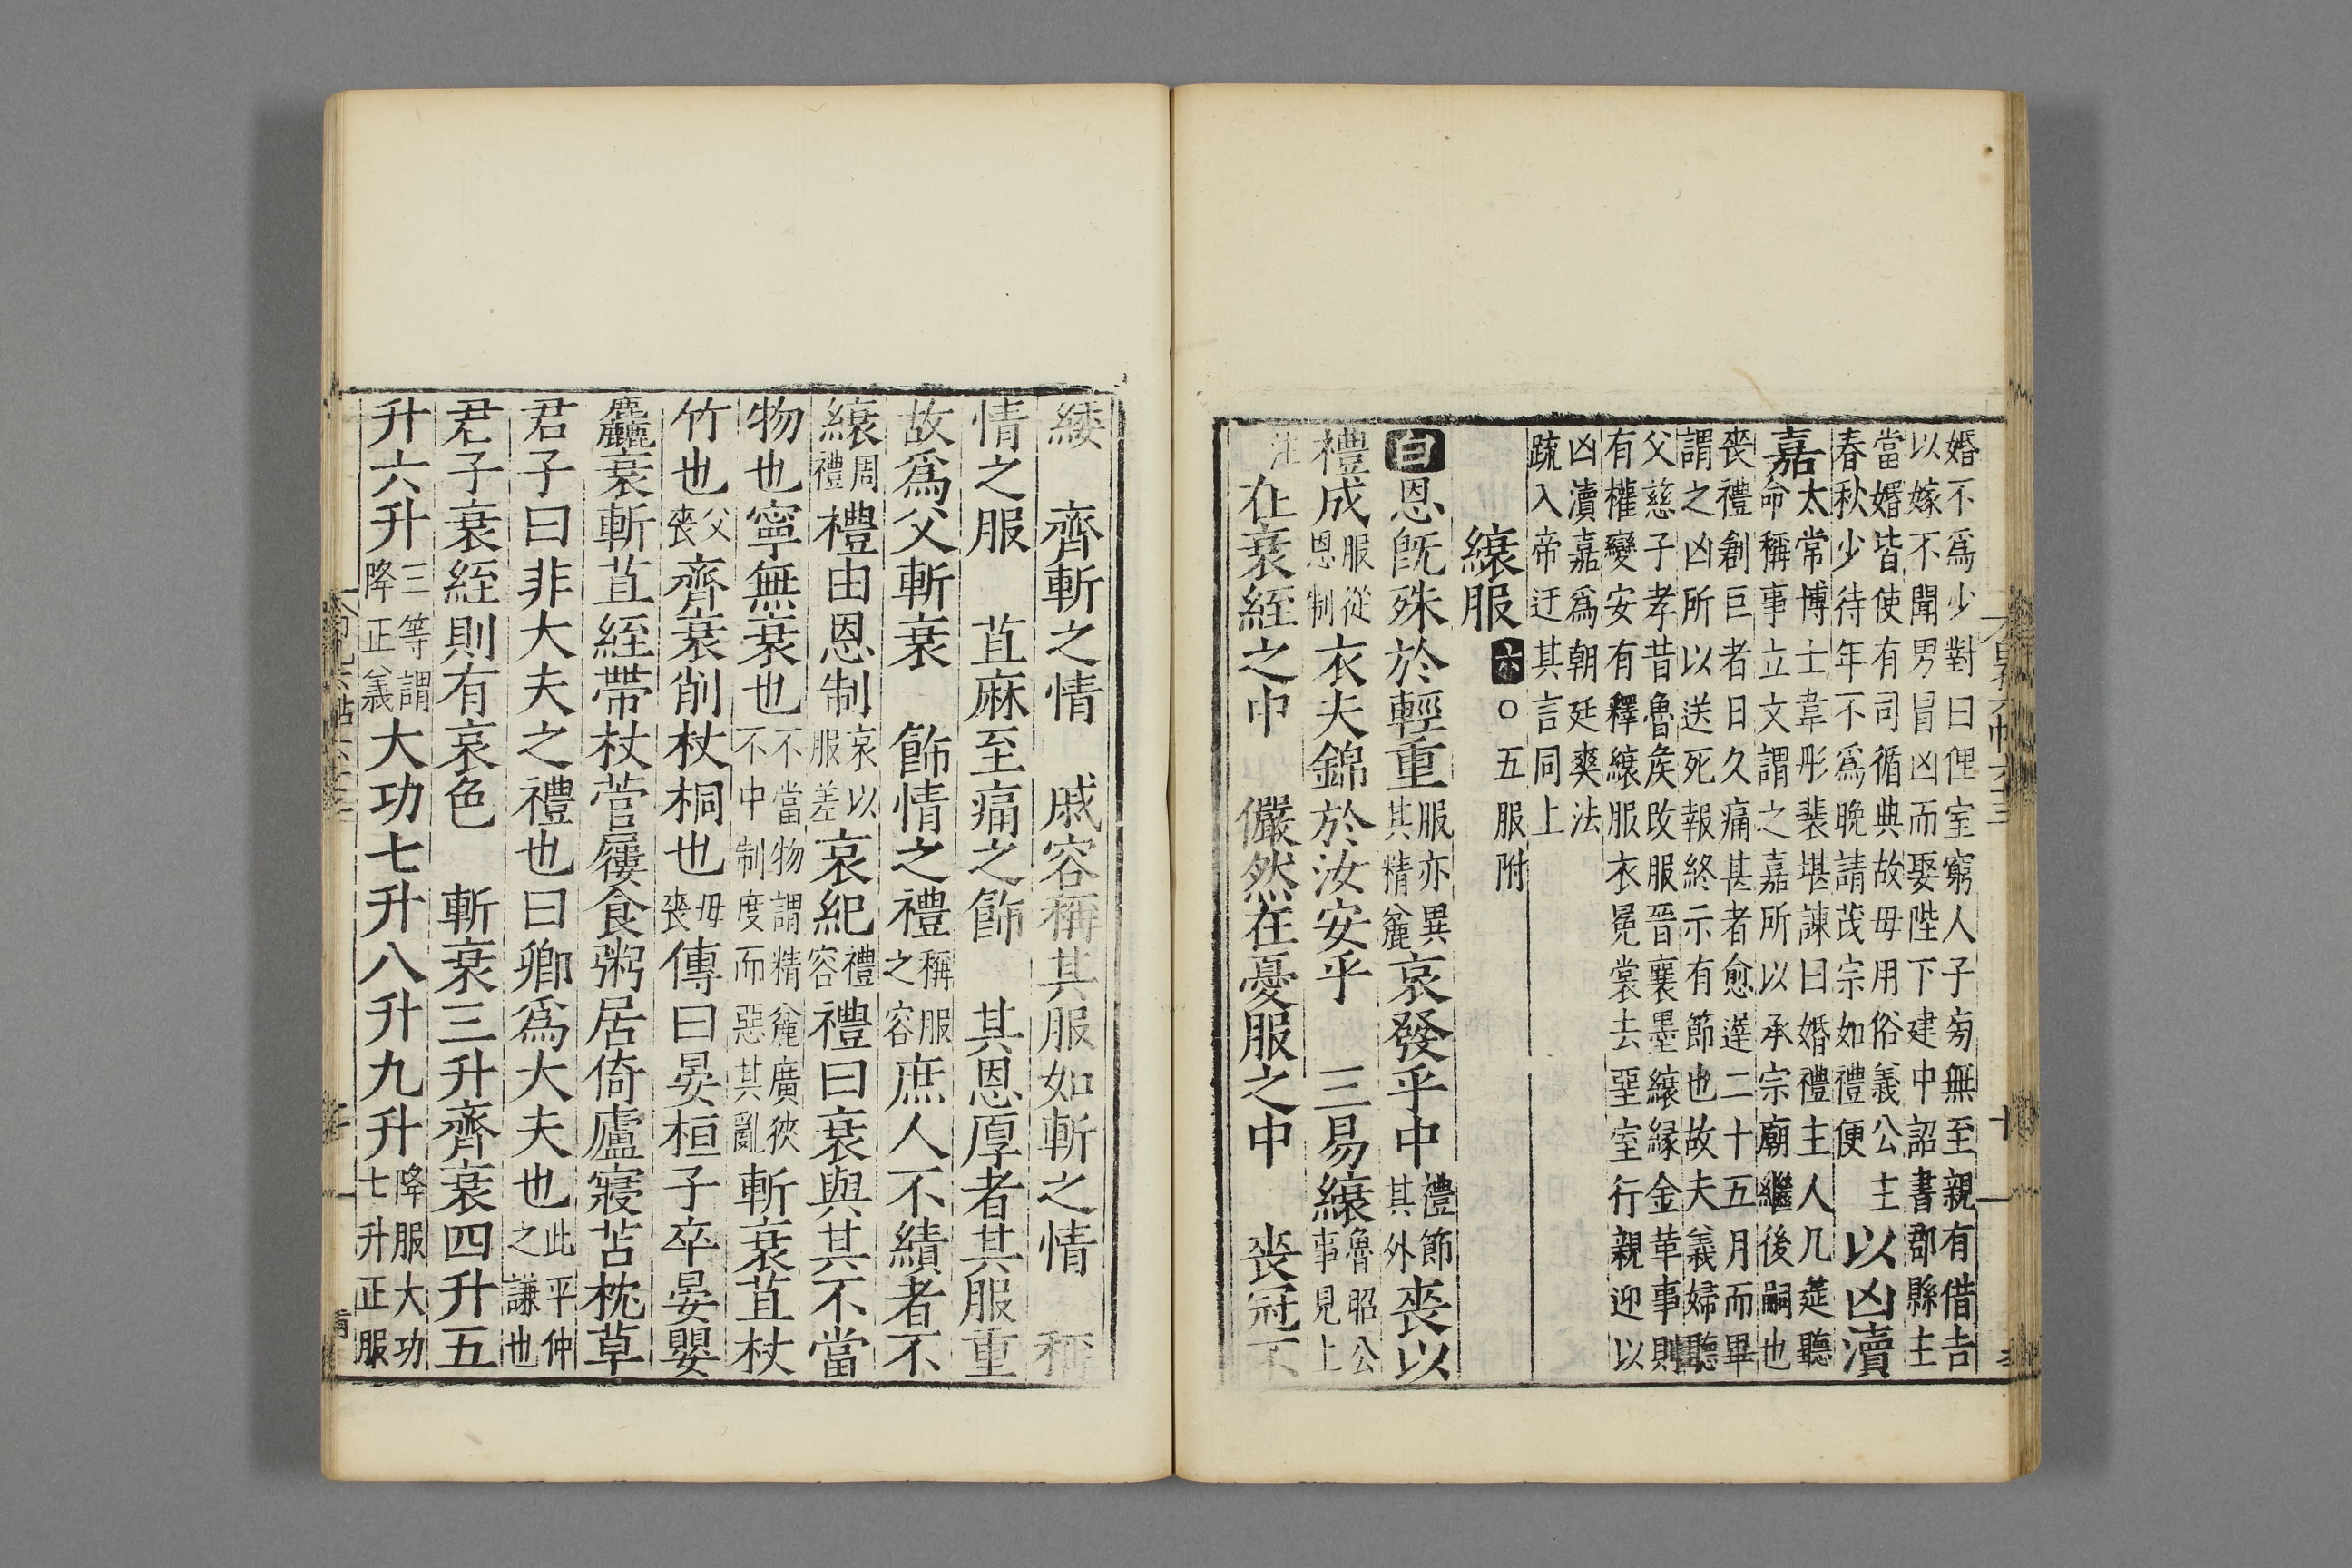 婚不爲少對曰俚室窮人子旁無至親有借吉
以嫁不聞男冒凶而娶陛下建中詔書郡縣主
當婚皆使有司循典故毋用俗義公主
春秋少待年不爲晚請茂宗如禮便
以凶瀆
嘉
太常博士韋彤裴堪諫曰婚禮主人几筵聽
命稱事立文謂之嘉所以承宗廟繼後嗣也
喪禮創巨者日久痛甚者愈遲二十五月而畢
謂之凶所以送死報終示有節也故夫義婦聽
父慈子孝昔魯矦攺服晉襄墨縗縁金革事則
有權變安有釋縗服衣冕裳去堊室行親迎以
凶瀆嘉爲朝廷爽法
疏入帝迂其言同上
縗服 六 ○五服附
白恩旣殊於輕重服亦異其精麄哀發乎中禮節其外喪以
禮成服從恩制衣夫錦於汝安乎 三易縗魯昭公事見上
注在衰絰之中 儼然在憂服之中 喪冠不
緌 齊斬之情 戚容稱其服如斬之情 稱
情之服 苴麻至痛之飾 其恩厚者其服重
故爲父斬衰 飾情之禮稱服之容庶人不績者不
縗周禮禮由恩制哀以服差哀紀禮容禮曰衰與其不當
物也寧無衰也不當物謂精麄廣狹不中制度而惡其亂斬衰苴杖
竹也父喪齊衰削杖桐也毋喪傳曰晏桓子卒晏嬰
麤衰斬苴絰帶杖菅屨食粥居倚廬寢苫枕草
君子曰非大夫之禮也曰卿爲大夫也此平仲之謙也
君子衰絰則有哀色 斬衰三升齊衰四升五
升六升三等謂降正義大功七升八升九升降服大功七升正服